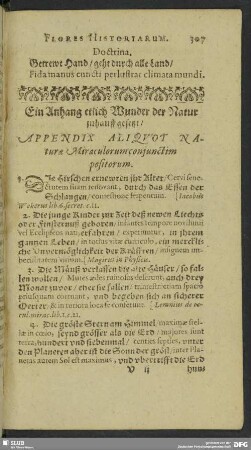 FLORES HISTORIARUM. 307
Doctrina.
Getrewe Hand / geht durch alle Land /
Fida manus cuncti perlustrat climata mundi.
Ein Anhang etlich Wunder der Natur
zuhauff gesetzt /
APPENDIX ALIQVOT NA-
turæ Miraculorum conjunctim
positorum.
1. Die Hirschen ernewren jhr Alter / Cervi sene-
ctutem suam restaurant, durch das Essen der
Schlangen /
2. Die junge Kinder zur Zeit deß newen Liechts
oder Finsternuß geboren /
vel Eclipseos natæ, erfahren / experiuntur, in jhrem
gantzen Leben / in tota vitæ curriculo, ein merckli-
che Unvermöglichkeit der Kräfften / insignem im-
becillitatem virium. [Magirus in Physica.
3. Die Mäuß verlassen die alte Häuser / so fal-
len wöllen / Mures ædes ruinosas deserunt, auch drey
Monat zuvor / ehe sie fallen / trimestri etiam spacio
priusquam corruant, und begeben sich an sicherer
Oerter / & in tutiora loca se conferunt. [Lemnius de oc-
cul. mirac. lib.
4. Die gröste Stern am Himmel / maximæ stel-
læ in cœlo, seynd grösser als die Erd / majores sunt
terra, hundert und siebenmal / centies septies, unter
den Planeten aber ist die Sonn der gröst / inter Pla-
netas autem Sol est maximus, und ubertrifft die Erd
V ij hun-
SLUB